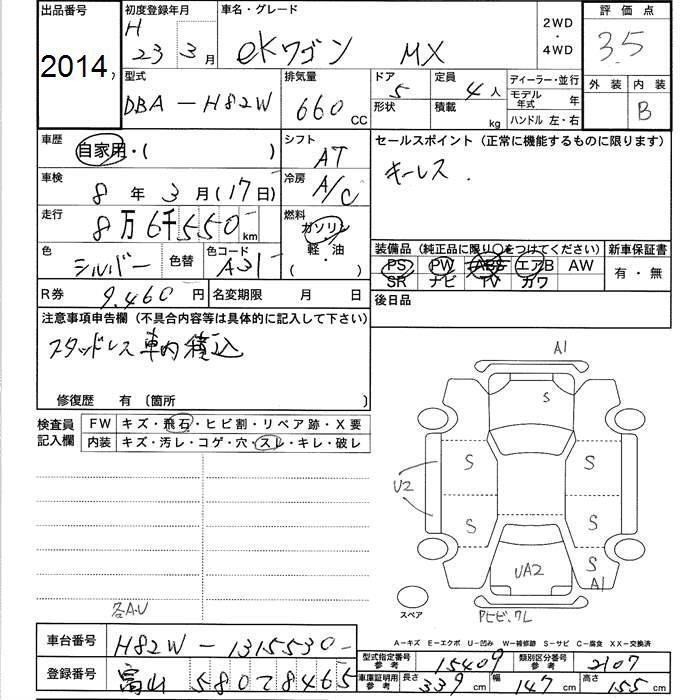 出品番号 初度登録年月 車名・グレード 2WD・4WD 評価点
2014, H 23 3月 eKワゴン MX 3.5
型式 排気量 ドア 定員 ディーラー・並行 外装 内装
DBA-H82W 660cc 5 4人 モデル年式 年 B
形状 積載 kg ハンドル 左・右
車歴 シフト セールスポイント(正常に機能するものに限ります)
自家用・( ) AT キーレス.
車検 冷房
8年3月(17日) A/C
走行 燃料
8万6千550km ガソリン
色 色替 色コード 軽・油 装備品(純正品に限り○をつけてください) 新車保証書
シルバー A31 ( ・ ) PS PW ABS エアB AW 有・無
SR ナビ TV カワ
R券 9,460円 名変期限 月 日 後日品
注意事項申告欄(不具合内容等は具体的に記入して下さい)
スタッドレス車内積込
修復歴 有(箇所 )
検査員記入欄 FW キズ・飛石・ヒビ割・リペア跡・X要
内装 キズ・汚レ・コゲ・穴・スレ・キレ・破レ
A1
S
S S
U2
S S
UA2 S
A1
スペア
各A.U
A−キズ E−エクボ U−凹み W−補修跡 S−サビ C−腐食 XX−交換済
車台番号 H82W-1315530-
型式指定番号 参考 15409 類別区分番号 参考 2107
登録番号 富山 580 て 8465
車庫証明用 参考 長さ 339cm 幅 147cm 高さ 155cm